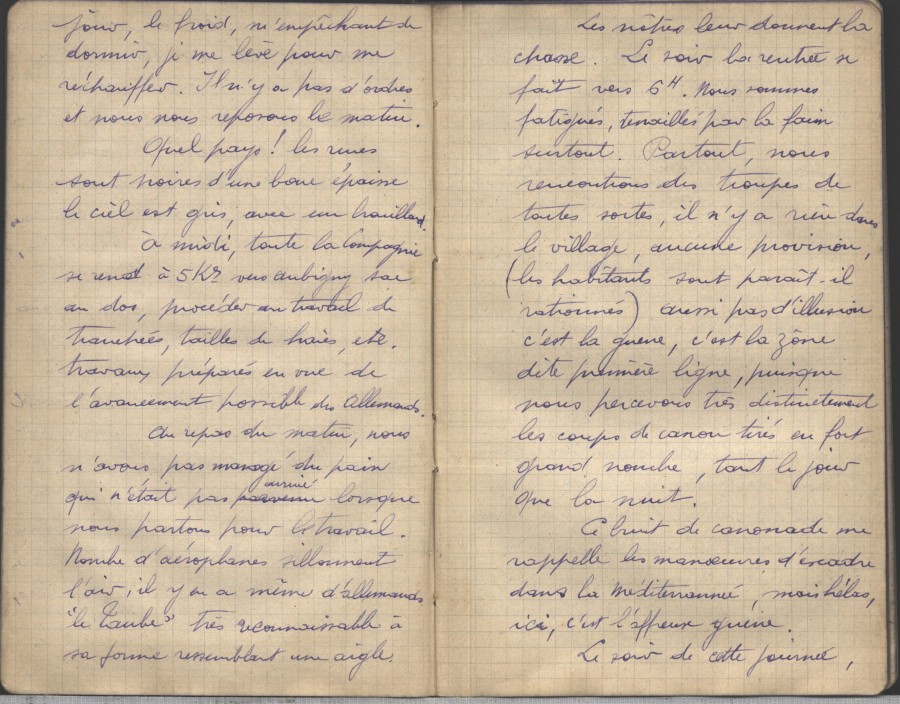 jour, le froid, m'empêchant de
dormir, je me lève pour me
réchauffer. Il n'y a pas d'ordres
et nous nous reposons le matin.
Quel pays! les rues
sont noires d'une boue épaisse
le ciel est gris, avec un brouillard.
à midi, toute la Compagnie
se rend à 5 Km vers aubigny sac
au dos, procéder au travail de
tranchées, tailles de haies, etc.
travaux préparés en vue de
l'avancement possible des Allemands.
Au repas du matin, nous
n'avons pas mangé du pain
qui n'était pas parvenu arrivé lorsque
nous partons pour le travail.
Nombre d'aéroplanes sillonnent
l'air, il y en a même d'allemands
"le Taube" très reconnaissable à
sa forme ressemblant une aigle.
Les nôtres leur donnent la
chasse. Le soir la rentrée se
fait vers 6H. Nous sommes
fatigués, tenaillés par la faim
surtout. Partout, nous
rencontrons des troupes de
toutes sortes, il n'y a rien dans
le village, aucune provision,
(les habitants sont parait-il
rationnés) aussi pas d'illusion
c'est la guerre, c'est la zône
dite première ligne, puisque
nous percevons très distinctement
les coups de canon tirés en fort
grand nombre, tant le jour
que la nuit.
Ce bruit de canonade me
rappelle les manœuvres d'escadre
dans la Méditerrannée, mais hélas,
ici, c'est l'affreuse guerre.
Le soir de cette journée,